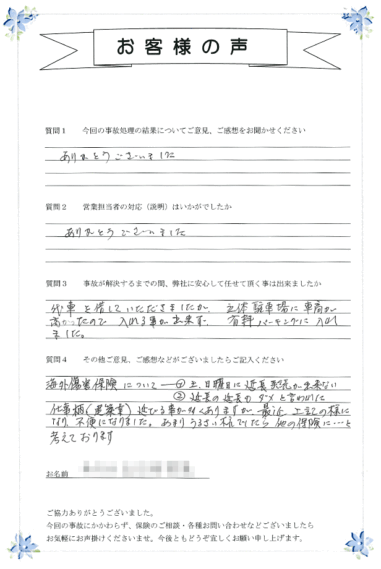 お客様の声
質問1 今回の事故処理の結果についてご意見、ご感想をお聞かせください
ありがとうございました
質問2 営業担当者の対応（説明）はいかがでしたか
ありがとうございました
質問3 事故が解決するまでの間、弊社に安心して任せて頂く事は出来ましたか
代車を借していただきましたが、立体駐車場に車高が
高かったので 入れる事が出来ず、有料パーキングに入れ
ました。
質問4 その他ご意見、ご感想などがございましたらご記入ください
海外傷害保険について ― ① 土、日曜日に延長が出来ない
② 延長の延長がダメと言われた
仕事柄（建築業）延びる事が多くありますが、最近 上記の様に
なり、不便になりました。あまりうるさい様でしたら 他の保険に…と
考えております
お名前
ご協力ありがとうございました。
今回の事故にかかわらず、保険のご相談・各種お問い合わせなどございましたら
お気軽にお声掛けくださいませ。今後ともどうぞ宜しくお願い申し上げます。